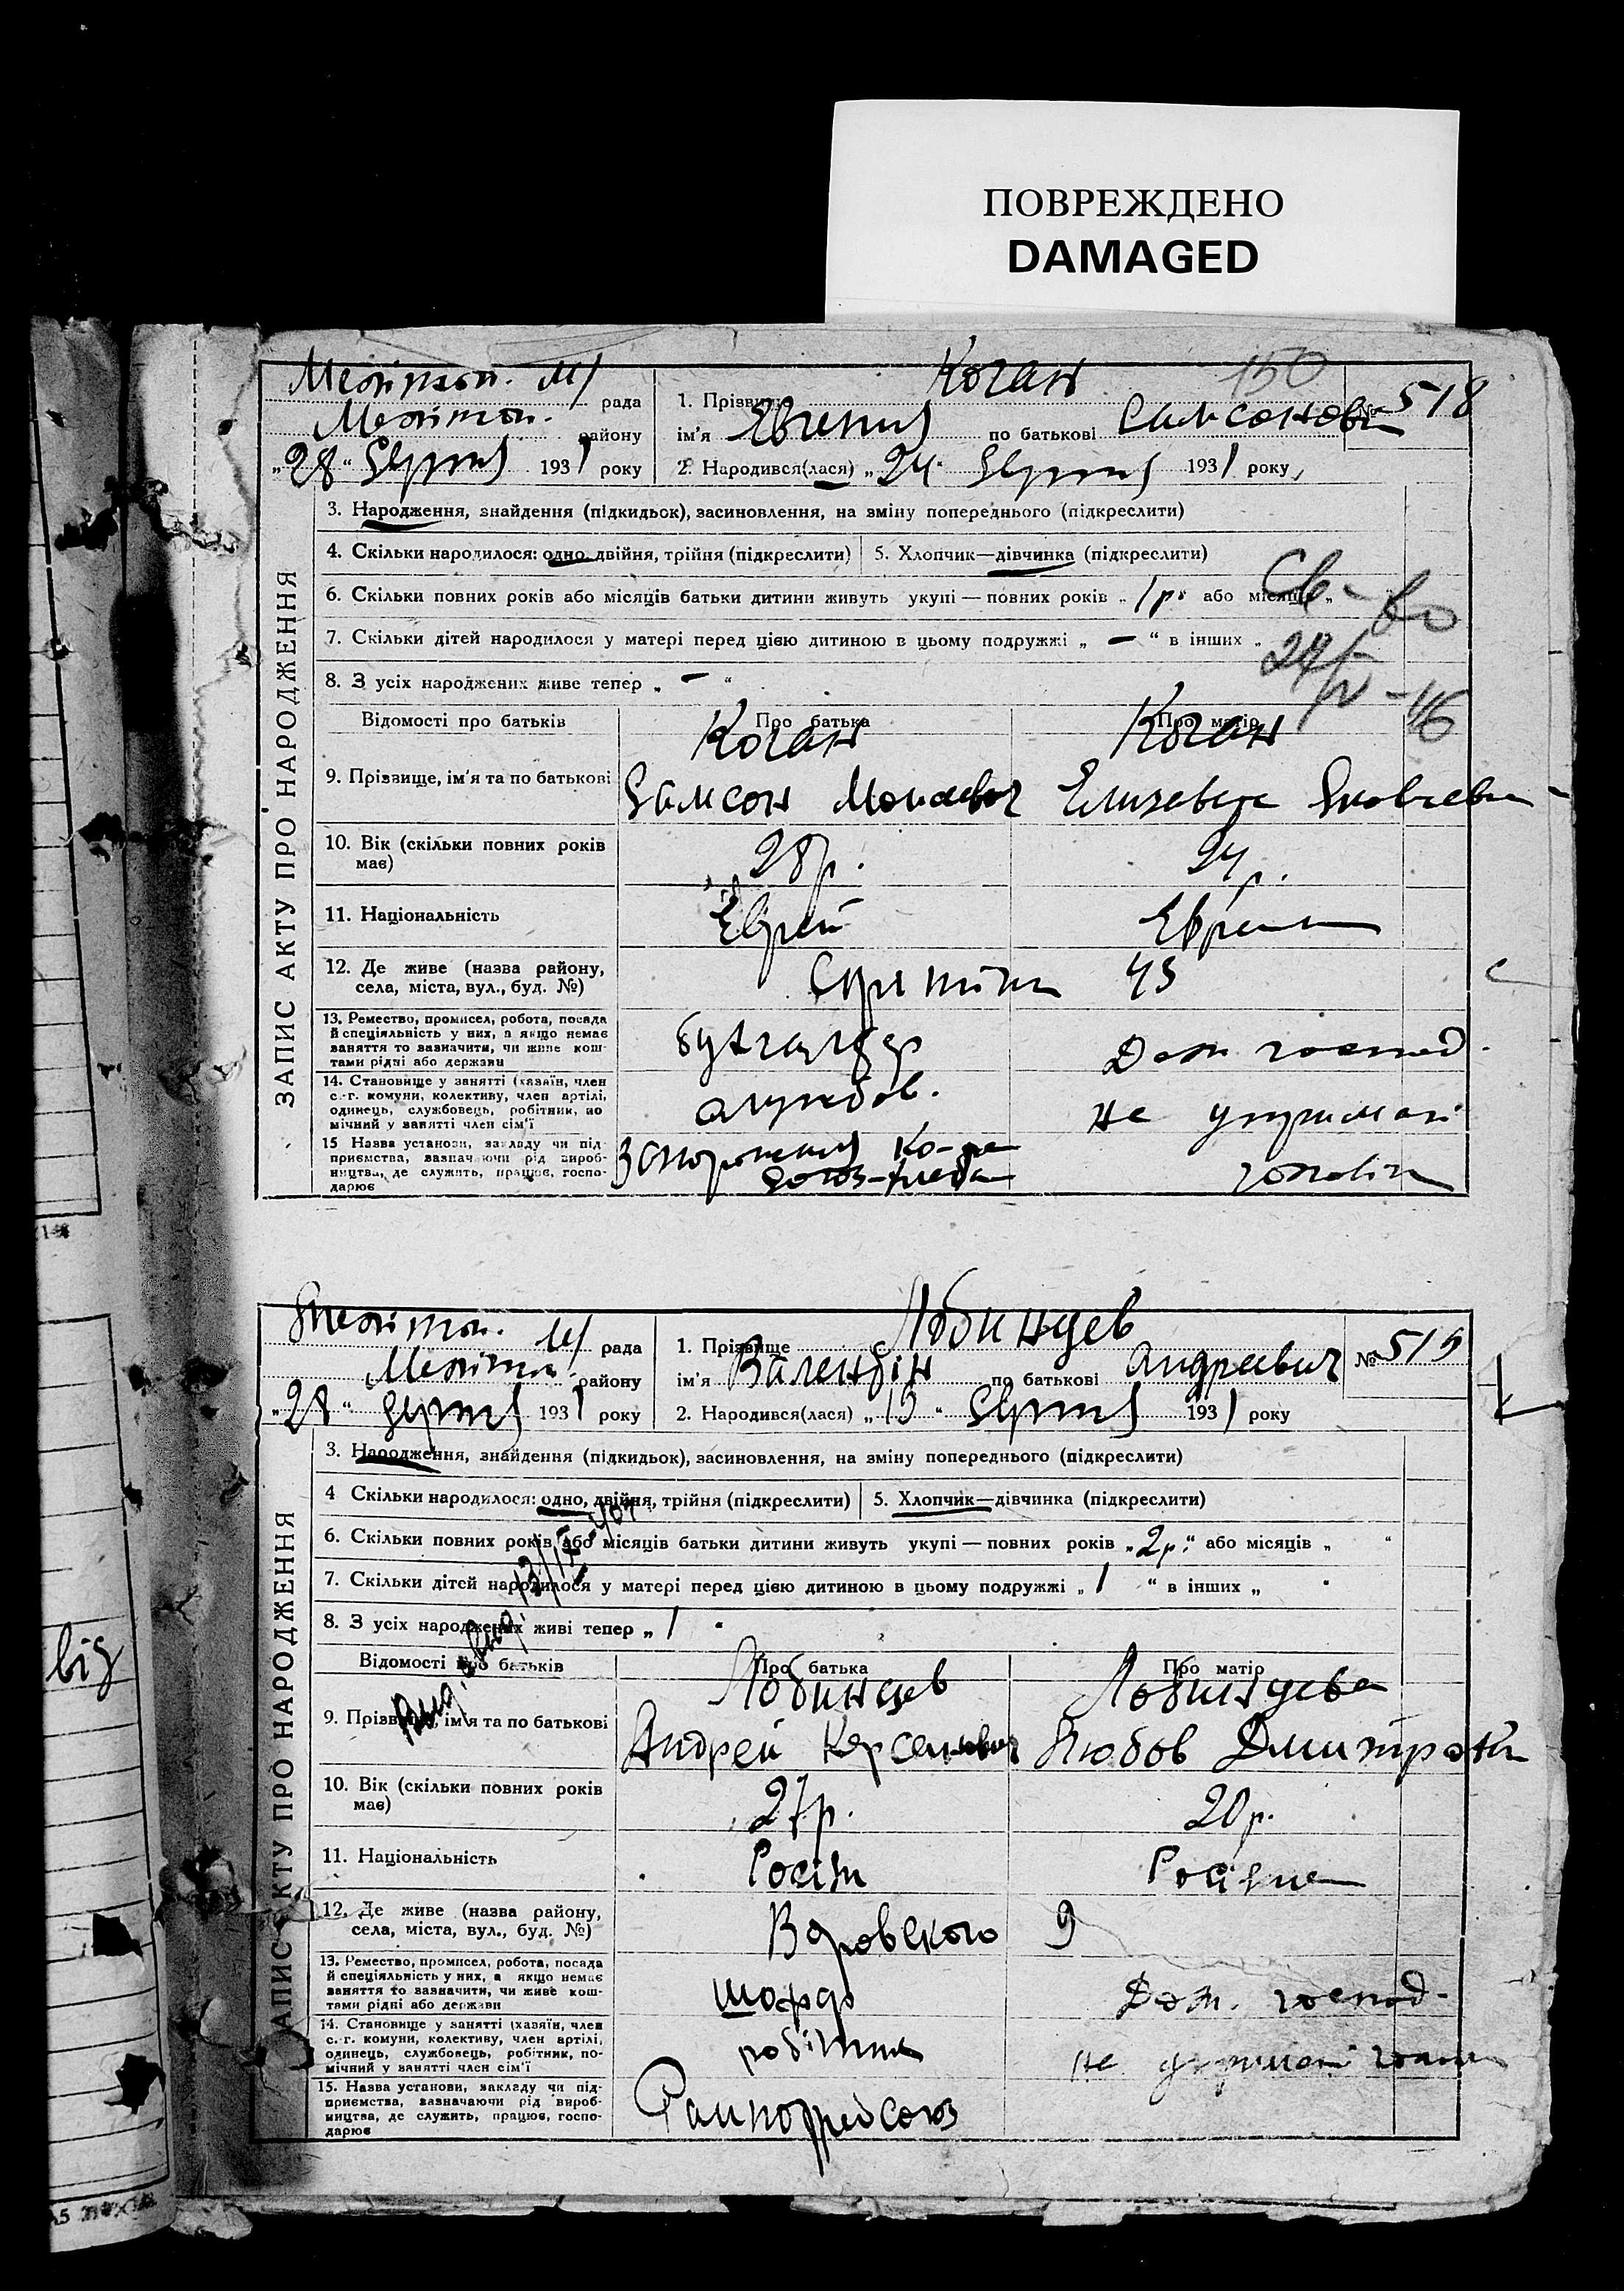 ПОВРЕЖДЕНО
DAMAGED
ЗАПИС АКТУ ПРО НАРОДЖЕННЯ
150
рада
1. Прізвище Коган
№ 518
району
ім'я Євгения по батькові Самсоновна
„28“ Серпня 1931 року
2. Народився(лася) „24“ Серпня 1931 року
3. Народження, знайдення (підкидьок), засиновлення, на зміну попереднього (підкреслити)
4. Скільки народилося: одно, двійня, трійня (підкреслити)
5. Хлопчик—дівчинка (підкреслити)
6. Скільки повних років або місяців батьки дитини живуть укупі — повних років „1р“ або місяців „
7. Скільки дітей народилося у матері перед цією дитиною в цьому подружжі „ – “ в інших „
8. З усіх народжених живе тепер „ – “
Св-во
Відомості про батьків
Про батька
Про матір
Коган
Коган
9. Прізвище, ім'я та по батькові
Самсон
Елизавета Яковлевна
10. Вік (скільки повних років має)
28р.
24р.
11. Національність
Еврей
Еврейка
12. Де живе (назва району, села, міста, вул., буд. №)
45
13. Ремество, промисел, робота, посада й спеціяльність у них, а якщо немає заняття то зазначити, чи живе коштами рідні або держави
бухгалтер
Дом. господ.
14. Становище у занятті (хазяїн, член с.-г. комуни, колективу, член артілі, одинець, службовець, робітник, помічний у занятті член сім'ї
службов.
не
15 Назва установи, закладу чи підприємства, зазначаючи рід виробництва, де служить, працює, господарює
Союз-хлеба
ЗАПИС АКТУ ПРО НАРОДЖЕННЯ
рада
1. Прізвище Лобинцев
№ 519
району
ім'я Валентін по батькові Андреевич
„28“ Серпня 1931 року
2. Народився(лася) „19“ Серпня 1931 року
3. Народження, знайдення (підкидьок), засиновлення, на зміну попереднього (підкреслити)
4 Скільки народилося: одно, двійня, трійня (підкреслити)
5. Хлопчик—дівчинка (підкреслити)
6. Скільки повних років або місяців батьки дитини живуть укупі — повних років „2р.“ або місяців „ “
7. Скільки дітей народилося у матері перед цією дитиною в цьому подружжі „1“ в інших „ “
8. З усіх народжених живі тепер „1“
Відомості про батьків
Про батька
Про матір
Лобинцев
Лобинцева
9. Прізвище, ім'я та по батькові
Андрей
Любов
10. Вік (скільки повних років має)
27р.
20р.
11. Національність
12. Де живе (назва району, села, міста, вул., буд. №)
Воровского 9
13. Ремество, промисел, робота, посада й спеціяльність у них, а якщо немає заняття то зазначити, чи живе коштами рідні або держави
шофер
Дом. господ.
14. Становище у занятті (хазяїн, член с.-г. комуни, колективу, член артілі, одинець, службовець, робітник, помічний у занятті член сім'ї
робітник
не
15. Назва установи, закладу чи підприємства, зазначаючи рід виробництва, де служить, працює, господарює
від